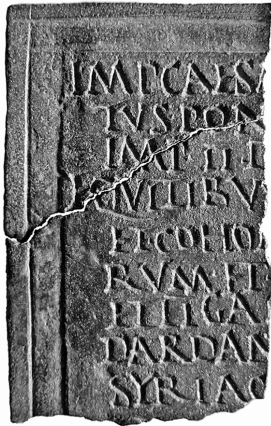 IMP CAES
TVS PON
IMP II
EQVITIBV
ET COHO
RVM ET
ET II GA
DARDAN
SYRIAC